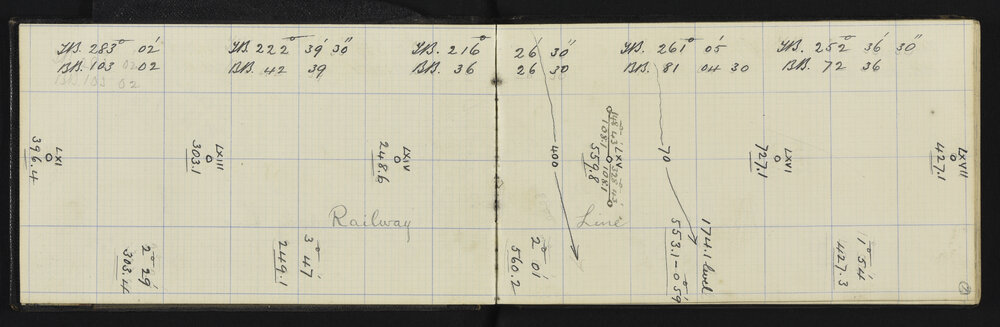 FB. 283° 02' FB. 222° 39' 30" FB. 216° 26' 30" FB. 261° 05' FB. 252° 36' 30"
BB. 103 02 BB. 42 39 BB. 36 26 30 BB. 81 04 30 BB. 72 36
BB. 103 02
LXI
396.4
LXIII
303.1
LXIV
248.6
400
LXV
559.8
1081
1081
70
LXVI
727.1
LXVII
427.1
Railway Line
2° 29'
303.4
3° 47'
249.1
2° 01'
560.2
174.1 level
553.1 - 0° 59'
1° 54'
427.3